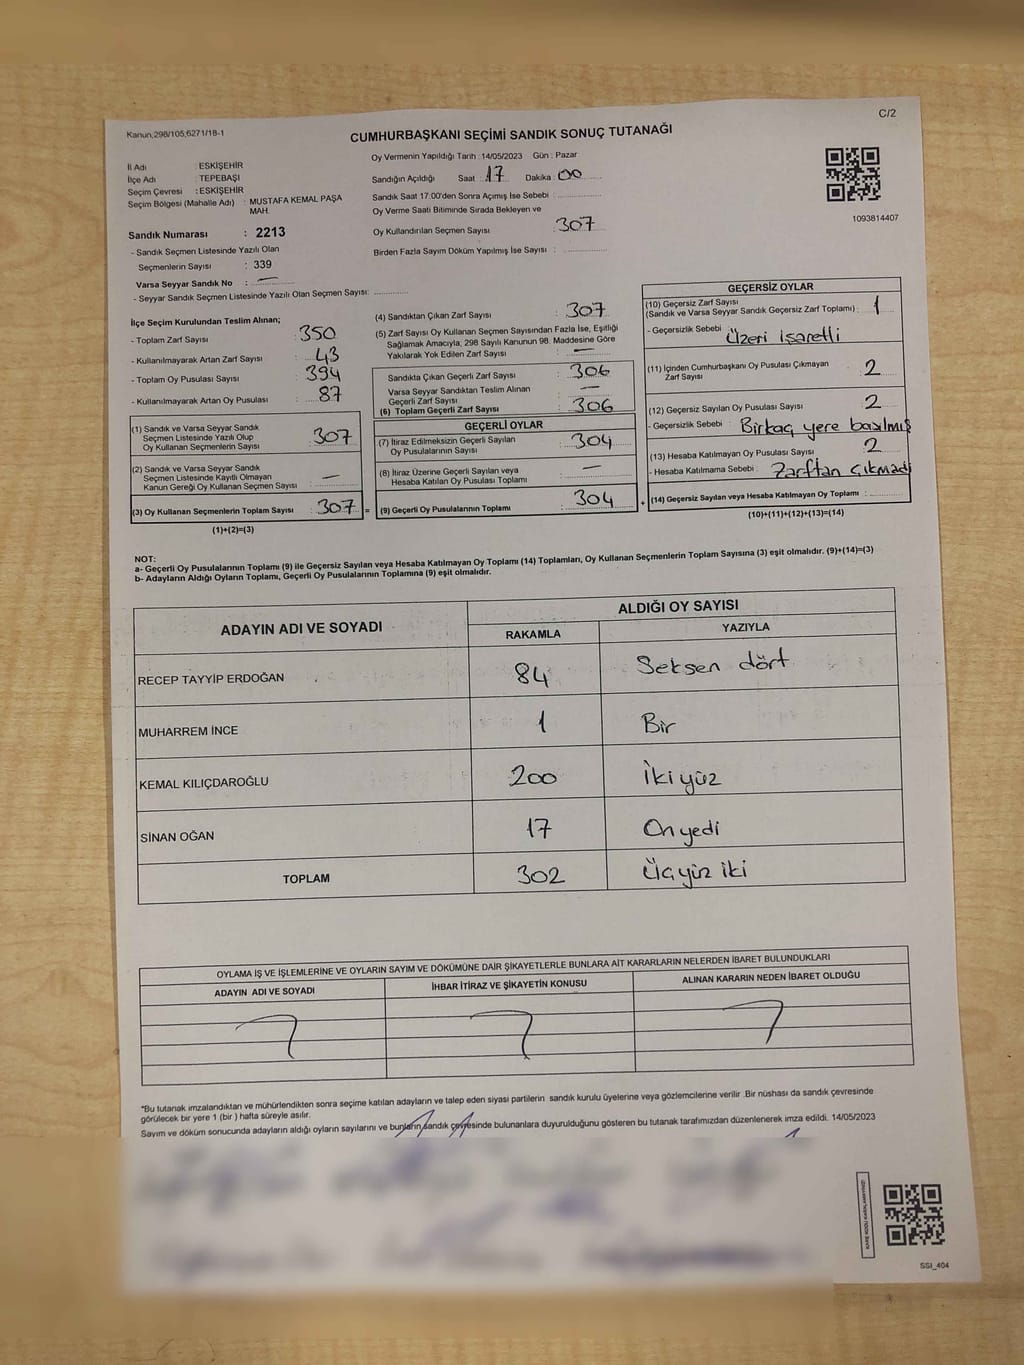 C/2
Kanun:298/105,6271/18-1
CUMHURBAŞKANI SEÇİMİ SANDIK SONUÇ TUTANAĞI
İl Adı : ESKİŞEHİR
İlçe Adı : TEPEBAŞI
Seçim Çevresi : ESKİŞEHİR
Seçim Bölgesi (Mahalle Adı) : MUSTAFA KEMAL PAŞA
MAH.
Sandık Numarası : 2213
- Sandık Seçmen Listesinde Yazılı Olan
Seçmenlerin Sayısı : 339
Varsa Seyyar Sandık No : —
- Seyyar Sandık Seçmen Listesinde Yazılı Olan Seçmen Sayısı: ............
Oy Vermenin Yapıldığı Tarih :14/05/2023 Gün : Pazar
Sandığın Açıldığı Saat : 17 Dakika : 00
Sandık Saat 17:00'den Sonra Açımış İse Sebebi : ............
Oy Verme Saati Bitiminde Sırada Bekleyen ve
Oy Kullandırılan Seçmen Sayısı : 307
Birden Fazla Sayım Döküm Yapılmış İse Sayısı : ............
1093814407
İlçe Seçim Kurulundan Teslim Alınan;
- Toplam Zarf Sayısı : 350
- Kullanılmayarak Artan Zarf Sayısı : 43
- Toplam Oy Pusulası Sayısı : 394
- Kullanılmayarak Artan Oy Pusulası : 87
(1) Sandık ve Varsa Seyyar Sandık
Seçmen Listesinde Yazılı Olup
Oy Kullanan Seçmenlerin Sayısı : 307
(2) Sandık ve Varsa Seyyar Sandık
Seçmen Listesinde Kayıtlı Olmayan
Kanun Gereği Oy Kullanan Seçmen Sayısı : —
(3) Oy Kullanan Seçmenlerin Toplam Sayısı : 307 =
(1)+(2)=(3)
(4) Sandıktan Çıkan Zarf Sayısı : 307
(5) Zarf Sayısı Oy Kullanan Seçmen Sayısından Fazla İse, Eşitliği
Sağlamak Amacıyla, 298 Sayılı Kanunun 98. Maddesine Göre
Yakılarak Yok Edilen Zarf Sayısı : —
Sandıkta Çıkan Geçerli Zarf Sayısı : 306
Varsa Seyyar Sandıktan Teslim Alınan
Geçerli Zarf Sayısı : —
(6) Toplam Geçerli Zarf Sayısı : 306
GEÇERLİ OYLAR
(7) İtiraz Edilmeksizin Geçerli Sayılan
Oy Pusulalarının Sayısı : 304
(8) İtiraz Üzerine Geçerli Sayılan veya
Hesaba Katılan Oy Pusulası Toplamı : —
(9) Geçerli Oy Pusulalarının Toplamı : 304 +
GEÇERSİZ OYLAR
(10) Geçersiz Zarf Sayısı
(Sandık ve Varsa Seyyar Sandık Geçersiz Zarf Toplamı) : 1
- Geçersizlik Sebebi : Üzeri İşaretli
(11) İçinden Cumhurbaşkanı Oy Pusulası Çıkmayan
Zarf Sayısı : 2
(12) Geçersiz Sayılan Oy Pusulası Sayısı : 2
- Geçersizlik Sebebi : Birkaç yere basılmış
(13) Hesaba Katılmayan Oy Pusulası Sayısı : 2
- Hesaba Katılmama Sebebi : Zarftan çıkmadı
(14) Geçersiz Sayılan veya Hesaba Katılmayan Oy Toplamı : ............
(10)+(11)+(12)+(13)=(14)
NOT:
a- Geçerli Oy Pusulalarının Toplamı (9) ile Geçersiz Sayılan veya Hesaba Katılmayan Oy Toplamı (14) Toplamları, Oy Kullanan Seçmenlerin Toplam Sayısına (3) eşit olmalıdır. (9)+(14)=(3)
b- Adayların Aldığı Oyların Toplamı, Geçerli Oy Pusulalarının Toplamına (9) eşit olmalıdır.
ADAYIN ADI VE SOYADI
ALDIĞI OY SAYISI
RAKAMLA YAZIYLA
RECEP TAYYİP ERDOĞAN 84 Seksen dört
MUHARREM İNCE 1 Bir
KEMAL KILIÇDAROĞLU 200 İki yüz
SİNAN OĞAN 17 On yedi
TOPLAM 302 Üç yüz iki
OYLAMA İŞ VE İŞLEMLERİNE VE OYLARIN SAYIM VE DÖKÜMÜNE DAİR ŞİKAYETLERLE BUNLARA AİT KARARLARIN NELERDEN İBARET BULUNDUKLARI
ADAYIN ADI VE SOYADI İHBAR İTİRAZ VE ŞİKAYETİN KONUSU ALINAN KARARIN NEDEN İBARET OLDUĞU
*Bu tutanak imzalandıktan ve mühürlendikten sonra seçime katılan adayların ve talep eden siyasi partilerin sandık kurulu üyelerine veya gözlemcilerine verilir .Bir nüshası da sandık çevresinde
görülecek bir yere 1 (bir ) hafta süreyle asılır.
Sayım ve döküm sonucunda adayların aldığı oyların sayılarını ve bunların sandık çevresinde bulunanlara duyurulduğunu gösteren bu tutanak tarafımızdan düzenlenerek imza edildi. 14/05/2023
SSI_404